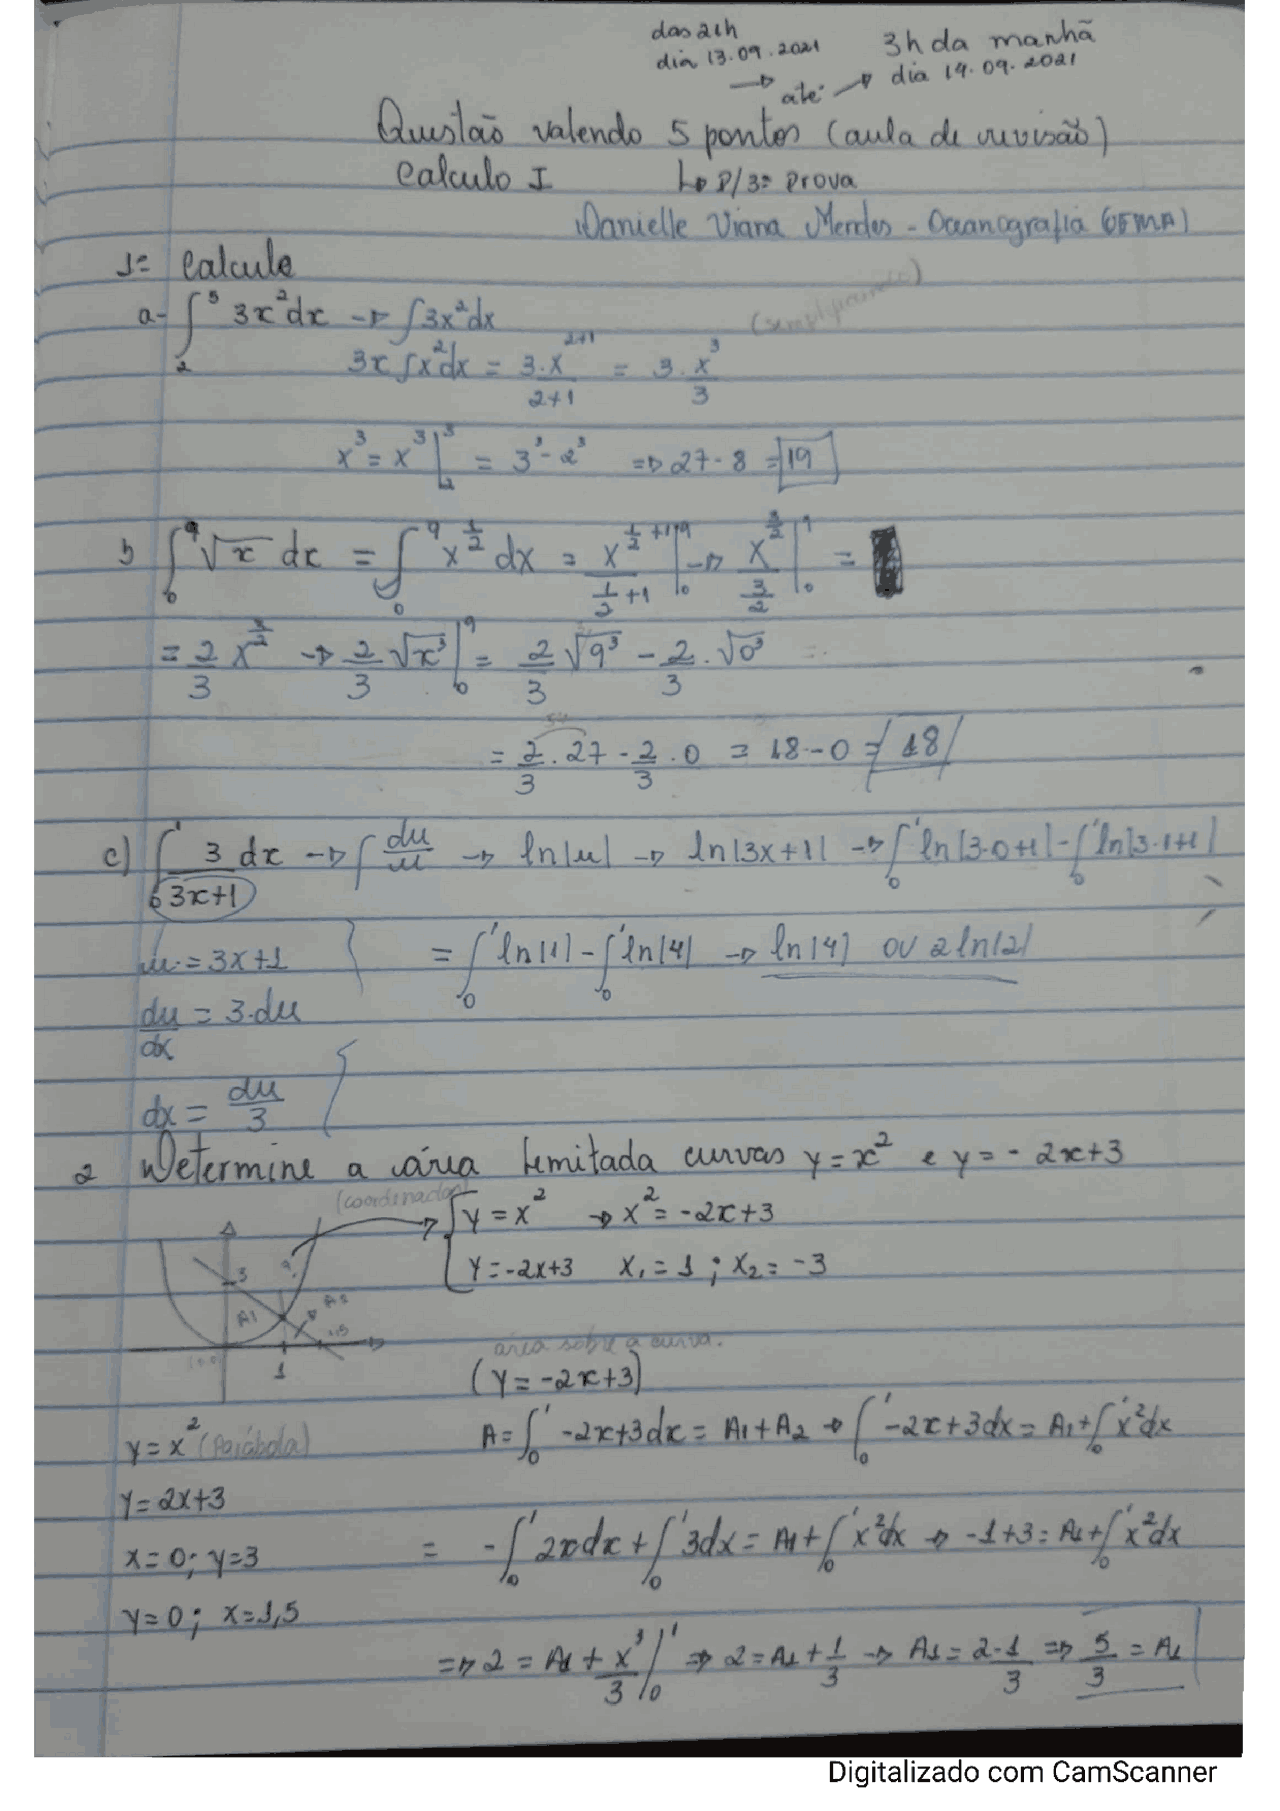 das 21h
dia 13.09.2021 3h da manhã
→ até → dia 14.09.2021
Questão valendo 5 pontos (aula de revisão)
Calculo I ↳ P/3ª Prova
Danielle Viana Mendes - Oceanografia (UFMA)
1ª Calcule
a- ∫₂³ 3x²dx → ∫3x²dx (simplificando)
3x ∫x²dx = 3.x²⁺¹/2+1 = 3.x³/3
x³ = x³|₂³ = 3³-2³ ⇒ 27-8 = 19
b ∫₀⁹ √x dx = ∫₀⁹ x^(1/2) dx = x^(1/2+1)/(1/2+1)|₀⁹ → x^(3/2)/(3/2)|₀⁹ =
= 2/3 x^(3/2) → 2/3 √x³|₀⁹ = 2/3 √9³ - 2/3 . √0³
54
= 2/3 . 27 - 2/3 . 0 = 18-0 = 18
c) ∫₀¹ 3/(3x+1) dx → ∫ du/u → ln|u| → ln|3x+1| → ∫₀¹ ln|3.0+1| - ∫₀¹ ln|3.1+1|
u = 3x+1 = ∫₀¹ ln|1| - ∫₀¹ ln|4| → ln|4| ou 2ln|2|
du/dx = 3.du
dx = du/3
2 Determine a área limitada curvas y=x² e y=-2x+3
(coordenadas) {y=x² → x²=-2x+3
y=-2x+3 x₁=1; x₂=-3
3
A1 A2
1,5
1
área sobre a curva.
(y=-2x+3)
y=x² (Parábola) A=∫₀¹ -2x+3dx = A₁+A₂ → ∫₀¹ -2x+3dx = A₁+∫₀¹ x²dx
y=2x+3
x=0; y=3 = -∫₀¹ 2xdx + ∫₀¹ 3dx = A1+∫₀¹ x²dx → -1+3 = A1+∫₀¹ x²dx
y=0; x=1,5
⇒ 2 = A1 + x³/3|₀¹ ⇒ 2 = A1+1/3 → A1 = 2-1/3 ⇒ 5/3 = A1
Digitalizado com CamScanner